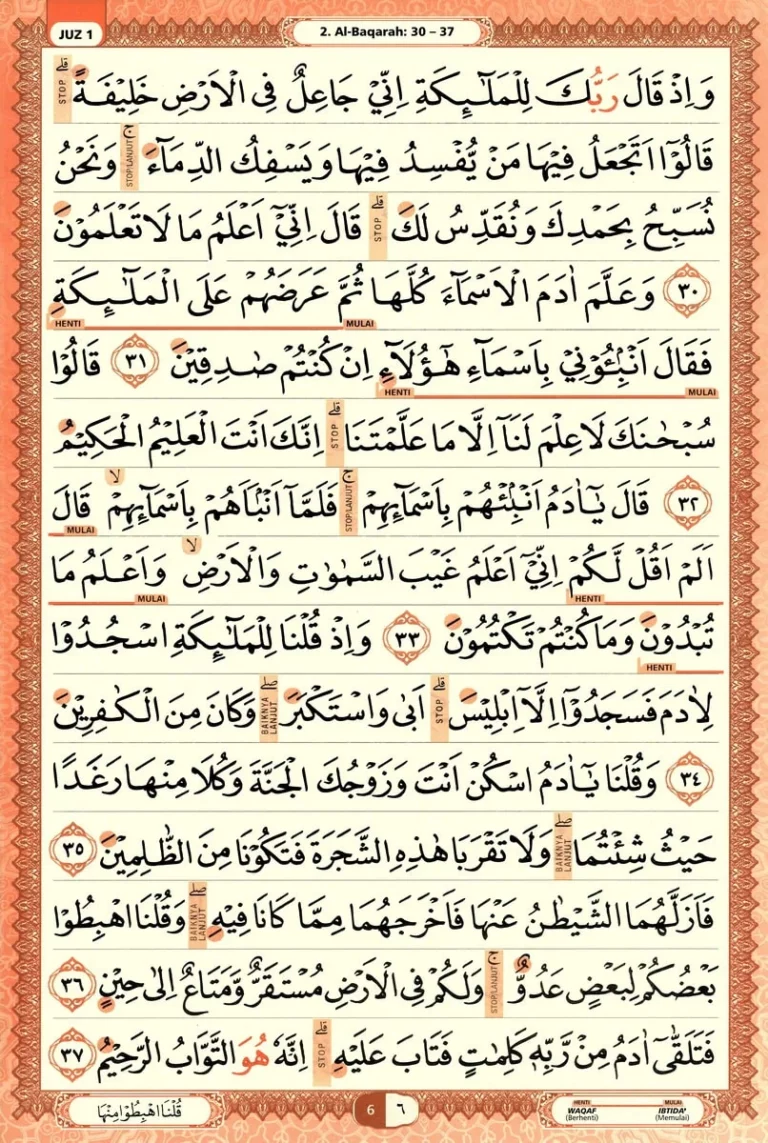 JUZ 1
2. Al-Baqarah: 30 – 37
وَاِذْ قَالَ رَبُّكَ لِلْمَلٰۤىِٕكَةِ اِنِّيْ جَاعِلٌ فِى الْاَرْضِ خَلِيْفَةً ۗ STOP
قَالُوْٓا اَتَجْعَلُ فِيْهَا مَنْ يُّفْسِدُ فِيْهَا وَيَسْفِكُ الدِّمَاۤءَ ۚ STOP/LANJUT وَنَحْنُ
نُسَبِّحُ بِحَمْدِكَ وَنُقَدِّسُ لَكَ ۗ STOP قَالَ اِنِّيْٓ اَعْلَمُ مَا لَا تَعْلَمُوْنَ
٣٠ وَعَلَّمَ اٰدَمَ الْاَسْمَاۤءَ كُلَّهَا ثُمَّ عَرَضَهُمْ عَلَى الْمَلٰۤىِٕكَةِ
MULAI HENTI
فَقَالَ اَنْۢبِـُٔوْنِيْ بِاَسْمَاۤءِ هٰٓؤُلَاۤءِ اِنْ كُنْتُمْ صٰدِقِيْنَ ٣١ قَالُوْا
MULAI HENTI
سُبْحٰنَكَ لَا عِلْمَ لَنَآ اِلَّا مَا عَلَّمْتَنَا ۗ STOP اِنَّكَ اَنْتَ الْعَلِيْمُ الْحَكِيْمُ
٣٢ قَالَ يٰٓاٰدَمُ اَنْۢبِئْهُمْ بِاَسْمَاۤىِٕهِمْ ۚ STOP/LANJUT فَلَمَّآ اَنْۢبَاَهُمْ بِاَسْمَاۤىِٕهِمْ ۙ قَالَ
MULAI
اَلَمْ اَقُلْ لَّكُمْ اِنِّيْٓ اَعْلَمُ غَيْبَ السَّمٰوٰتِ وَالْاَرْضِ ۙ وَاَعْلَمُ مَا
HENTI MULAI
تُبْدُوْنَ وَمَا كُنْتُمْ تَكْتُمُوْنَ ٣٣ وَاِذْ قُلْنَا لِلْمَلٰۤىِٕكَةِ اسْجُدُوْا
HENTI
لِاٰدَمَ فَسَجَدُوْٓا اِلَّآ اِبْلِيْسَ ۗ STOP اَبٰى وَاسْتَكْبَرَ ۖ BAIKNYA LANJUT وَكَانَ مِنَ الْكٰفِرِيْنَ
٣٤ وَقُلْنَا يٰٓاٰدَمُ اسْكُنْ اَنْتَ وَزَوْجُكَ الْجَنَّةَ وَكُلَا مِنْهَا رَغَدًا
حَيْثُ شِئْتُمَا ۖ BAIKNYA LANJUT وَلَا تَقْرَبَا هٰذِهِ الشَّجَرَةَ فَتَكُوْنَا مِنَ الظّٰلِمِيْنَ ٣٥
فَاَزَلَّهُمَا الشَّيْطٰنُ عَنْهَا فَاَخْرَجَهُمَا مِمَّا كَانَا فِيْهِ ۖ BAIKNYA LANJUT وَقُلْنَا اهْبِطُوْا
بَعْضُكُمْ لِبَعْضٍ عَدُوٌّ ۚ STOP/LANJUT وَلَكُمْ فِى الْاَرْضِ مُسْتَقَرٌّ وَّمَتَاعٌ اِلٰى حِيْنٍ ٣٦
فَتَلَقّٰٓى اٰدَمُ مِنْ رَّبِّهٖ كَلِمٰتٍ فَتَابَ عَلَيْهِ ۗ STOP اِنَّهٗ هُوَ التَّوَّابُ الرَّحِيْمُ ٣٧
قُلْنَا اهْبِطُوْا مِنْهَا
6 ٦
HENTI MULAI
WAQAF IBTIDA'
(Berhenti) (Memulai)